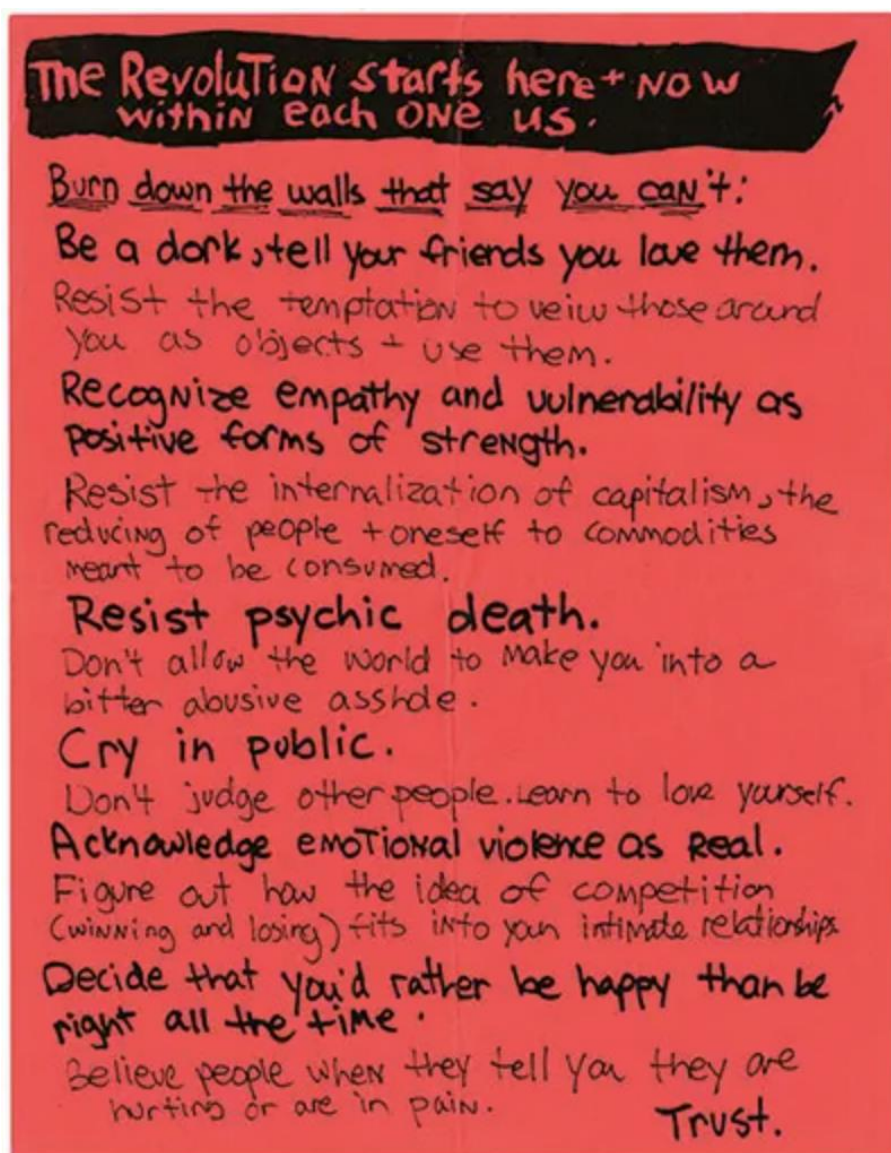 The Revolution starts here + Now
within each one us.
Burn down the walls that say you can't:
Be a dork, tell your friends you love them.
Resist the temptation to veiw those around
you as objects + use them.
Recognize empathy and vulnerability as
positive forms of strength.
Resist the internalization of capitalism, the
reducing of people + oneself to commodities
meant to be consumed.
Resist psychic death.
Don't allow the world to make you into a
bitter abusive asshole.
Cry in public.
Don't judge other people. Learn to love yourself.
Acknowledge emotional violence as real.
Figure out how the idea of competition
(winning and losing) fits into your intimate relationships.
Decide that you'd rather be happy than be
right all the time.
Believe people when they tell you they are
hurting or are in pain.
Trust.